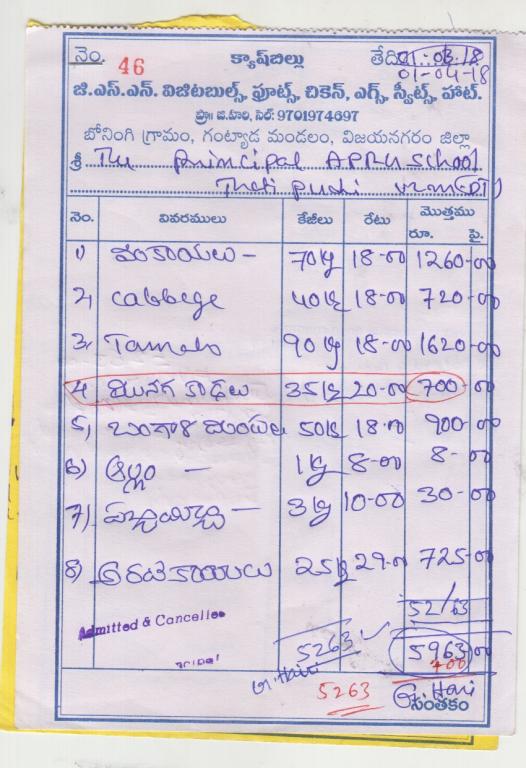 నెం. 46 క్యాష్‌బిల్లు తేది 01-03-18
01-04-18
జి.ఎస్.ఎన్. విజిటబుల్స్, ఫ్రూట్స్, చికెన్, ఎగ్స్, స్వీట్స్, హాట్.
ప్రొ: జి.హరి, సెల్: 9701974697
బోనింగి గ్రామం, గంట్యాడ మండలం, విజయనగరం జిల్లా
శ్రీ The principal APRU School
Thati pushi vzm(DT)
నెం. వివరములు కేజీలు రేటు మొత్తము
రూ. పై.
1) వంకాయలు - 70 kg 18-00 1260-00
2, Cabbege 40 kg 18-00 720-00
3, Tamelo 90 kg 18-00 1620-00
4, మునగ కాడలు 35 kg 20-00 700-00
5, బంగాళ దుంపలు 50 kg 18-00 900-00
6) అల్లం - 1 kg 8-00 8-00
7) పచ్చిమిర్చి - 3 kg 10-00 30-00
8) అరటికాయలు 25 kg 29-00 725-00
5263
Admitted & Cancelled
5263 5963 00
G. Hari 700
5263 G. Hari
సంతకం